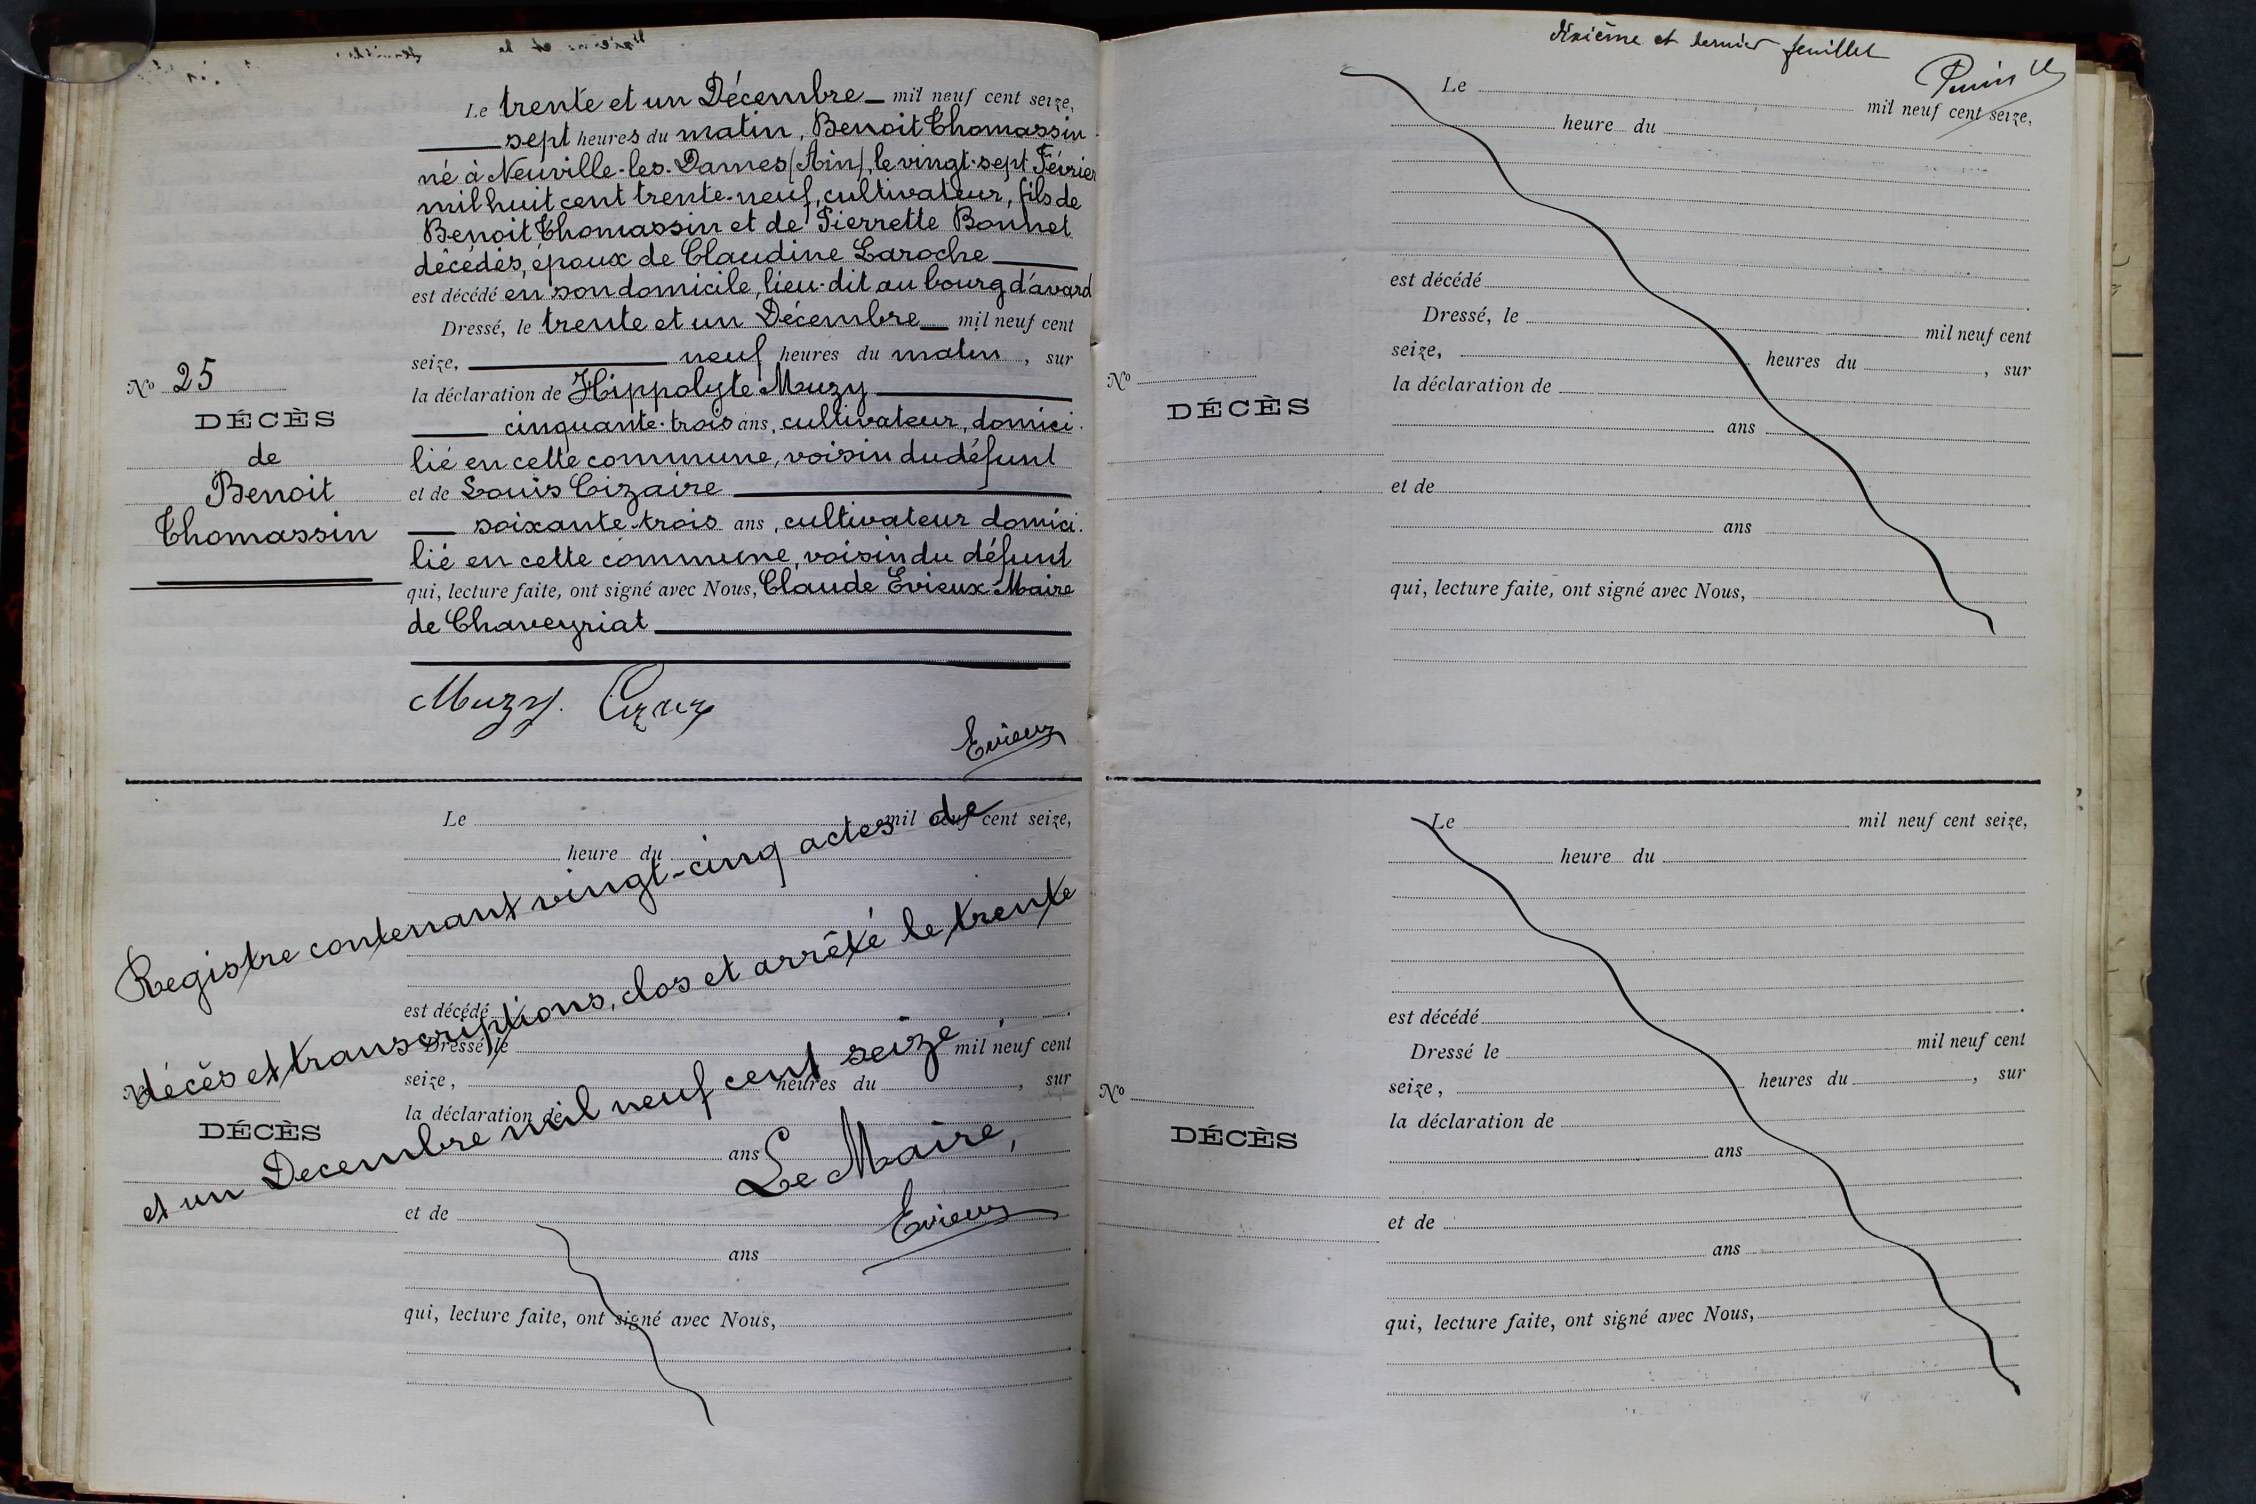 Le trente et un Décembre mil neuf cent seize,
sept heures du matin, Benoit Thomassin
né à Neuville-les-Dames (Ain), le vingt-sept Février
mil huit cent trente-neuf, cultivateur, fils de
Benoit Thomassin et de Pierrette Bonnet
décédés, époux de Claudine Laroche
est décédé en son domicile, lieu-dit au bourg d'avard
Dressé, le trente et un Décembre mil neuf cent
seize, neuf heures du matin, sur
la déclaration de Hippolyte Muzy
cinquante-trois ans, cultivateur, domici-
lié en cette commune, voisin du défunt
et de Louis Cizaire
soixante-trois ans, cultivateur domici-
lié en cette commune, voisin du défunt
qui, lecture faite, ont signé avec Nous, Claude Evieux Maire
de Chaveyriat
No 25
DÉCÈS
de
Benoit
Thomassin
Muzy.
Evieux
Le mil neuf cent seize,
heure du
est décédé
Dressé le mil neuf cent
seize, heures du , sur
la déclaration de
ans
et de
ans
qui, lecture faite, ont signé avec Nous,
No
DÉCÈS
Registre contenant vingt-cinq actes de
décès et transcriptions, clos et arrêté le trente
et un Decembre mil neuf cent seize.
Le Maire,
Evieux
dixième et dernier feuillet
Le mil neuf cent seize,
heure du
est décédé
Dressé, le mil neuf cent
seize, heures du , sur
la déclaration de
ans
et de
ans
qui, lecture faite, ont signé avec Nous,
No
DÉCÈS
Le mil neuf cent seize,
heure du
est décédé
Dressé le mil neuf cent
seize, heures du , sur
la déclaration de
ans
et de
ans
qui, lecture faite, ont signé avec Nous,
No
DÉCÈS